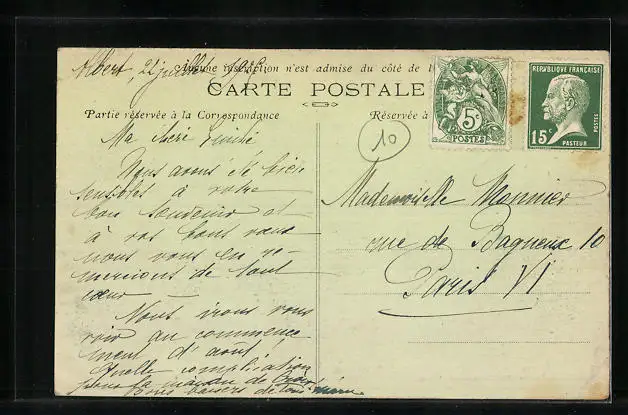 Albert, 22 juillet
Aucune inscription n'est admise du côté de l
CARTE POSTALE
Partie réservée à la Correspondance
Réservée à
5c
POSTES
REPUBLIQUE FRANÇAISE
15c
POSTES
PASTEUR
10
Ma
Nous avons été bien
sensibles à votre
bon souvenir et
à vos bons vœux
nous vous en re-
mercions de tout
cœur
Nous irons vous
voir au commence
ment d'août
Quelle complication
pour la de
Bons baisers de tous
Mademoiselle Monnier
rue de Bagneux 10
Paris VI